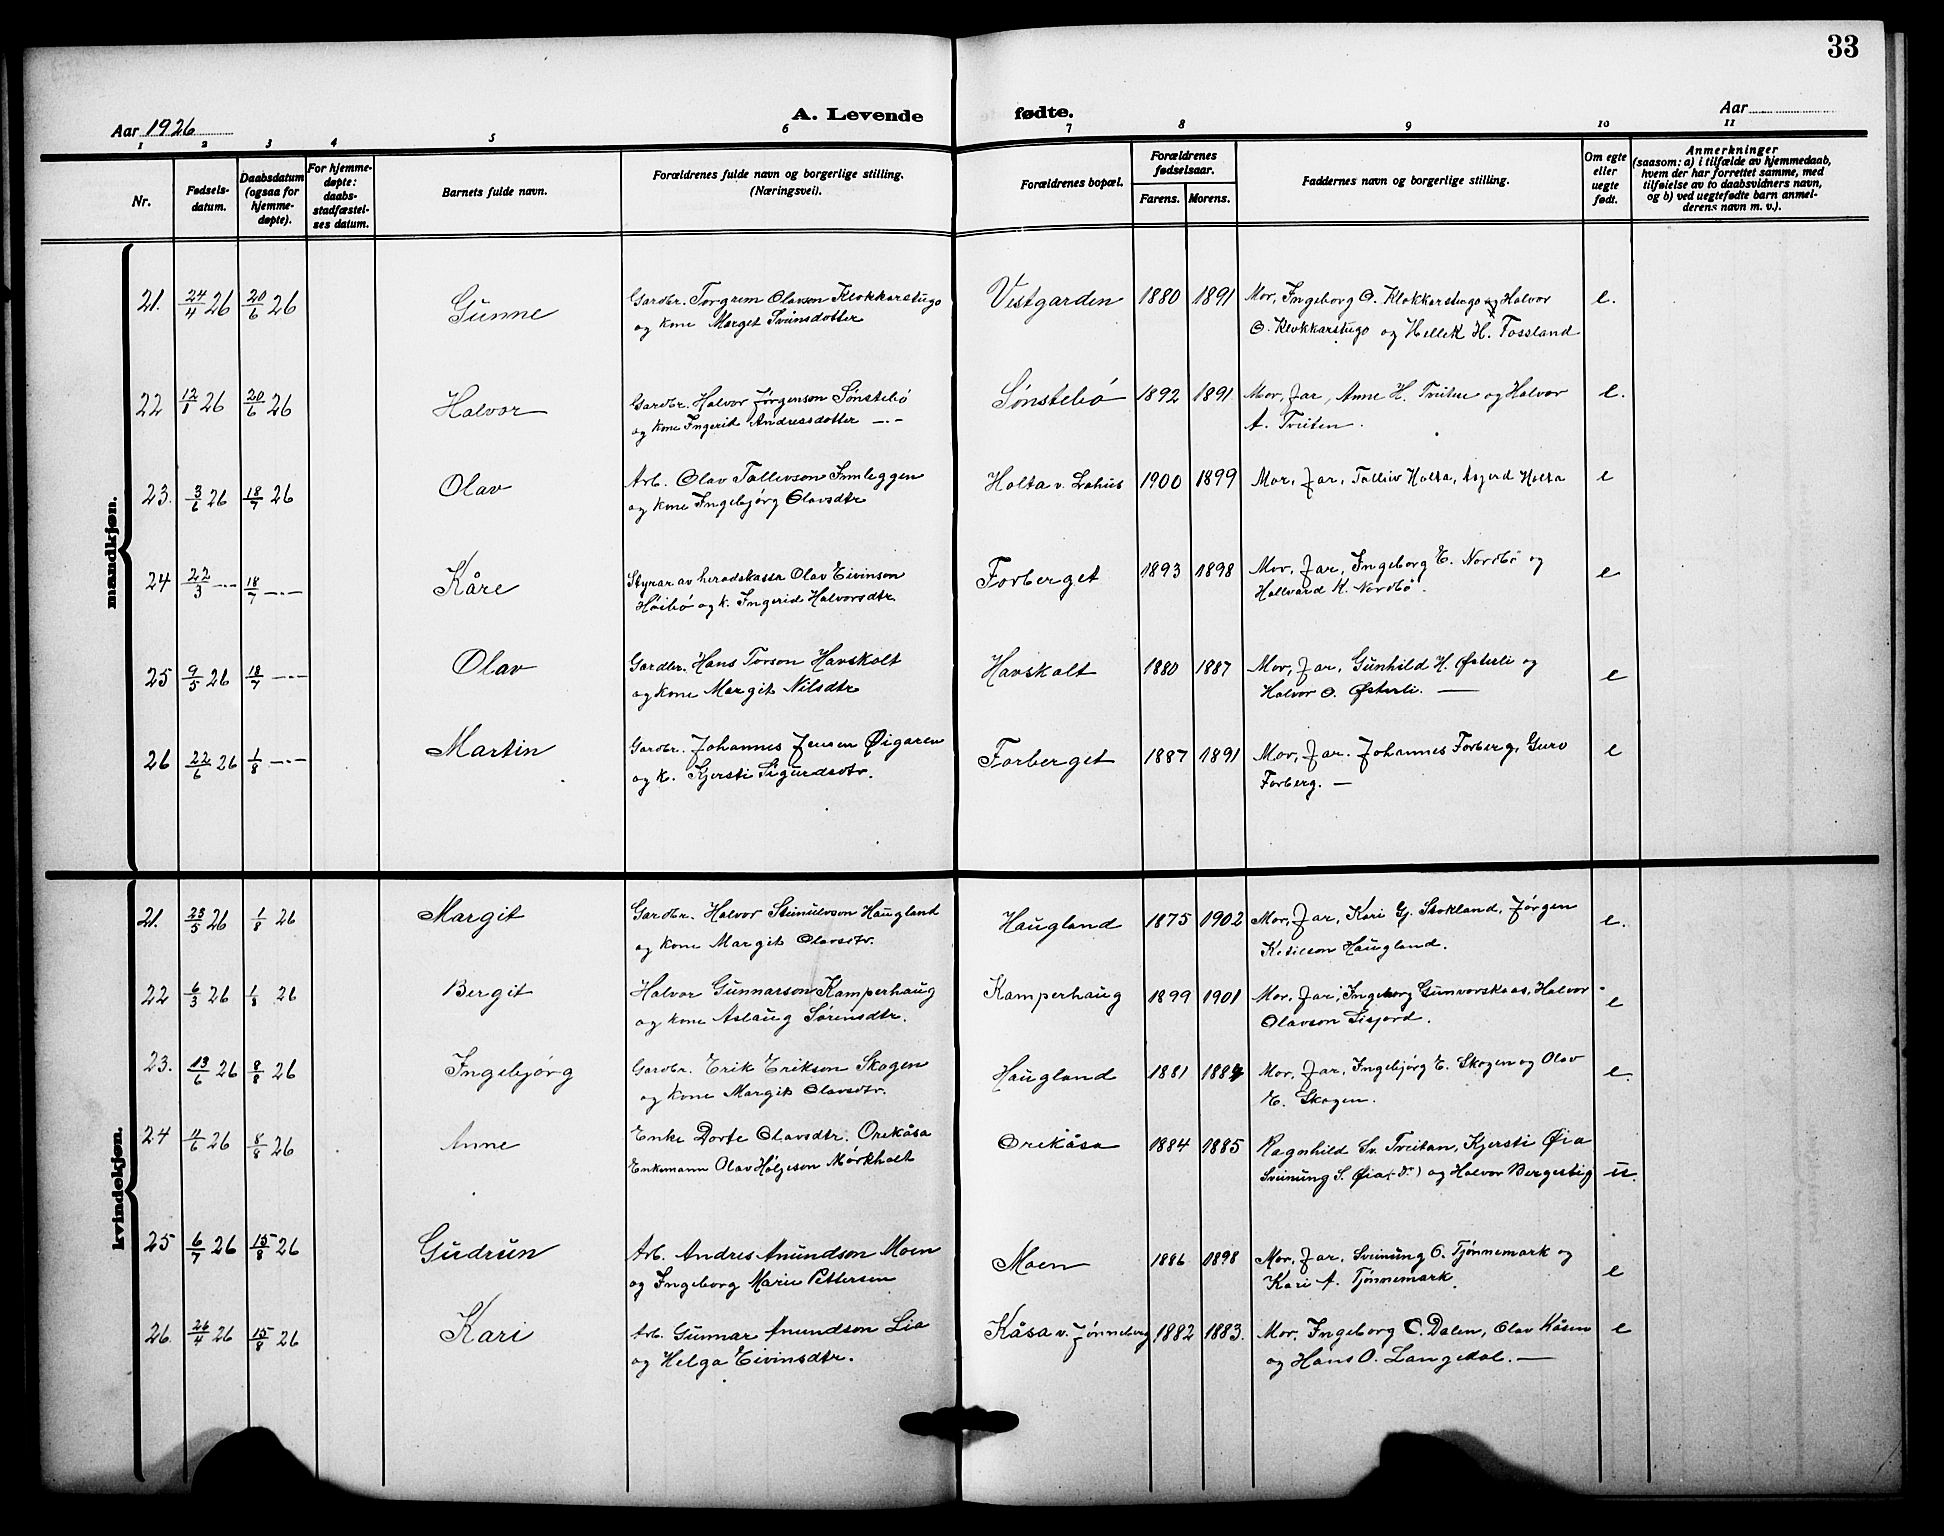 33
Aar 1926
A. Levende fødte.
Aar
1 2 3 4 5 6 7 8 9 10 11
Nr.
Fødsels-
datum.
Daabsdatum
(ogsaa for
hjemme-
døpte).
For hjemme-
døpte:
daabs-
stadfæstel-
ses datum.
Barnets fulde navn.
Forældrenes fulde navn og borgerlige stilling.
(Næringsvei).
Forældrenes bopæl.
Forældrenes
fødselsaar.
Farens. Morens.
Faddernes navn og borgerlige stilling.
Om egte
eller
uegte
født.
Anmerkninger
(saasom: a) i tilfælde av hjemmedaab,
hvem der har forrettet samme, med
tilføielse av to daabsvidners navn,
og b) ved uegtefødte barn anmel-
derens navn m. v.).
mandkjøn.
21. 24/4 26 20/6 26 Gunne Gardbr. Torgrim Olavson Klokkarstugo Vestgarden 1880 1891 Mor, Ingeborg O. Klokkarstugo og Halvor e.
og kone Marget Svensdotter O. Klokkarstugo og Hellek H. Fossland
22 12/1 26 20/6 26 Halvor Gardbr. Halvor Jørgenson Sønstebø Sønstebø 1892 1891 Mor, Far, Anne H. Tveiten og Halvor e.
og kone Ingerid Andresdotter —.— A. Tveiten.
23. 3/6 26 18/7 26 Olav Arb. Olav Tollevson Innleggen Holta v. Lahus 1900 1899 Mor, Far, Tolliv Holta, Asgerd Holta e
og kone Ingebjørg Olavsdtr
24 22/3 —.— 18/7 —.— Kåre Styrar av heradskassa Olav Eivinson Forberget 1893 1898 Mor, Far, Ingeborg E. Nordbø og e
Høibø og k. Ingerid Halvorsdtr. Hallvard K. Nordbø.
25 9/5 26 18/7 —.— Olav Gardbr. Hans Torson Havskolt Havskolt 1880 1887 Mor, Far, Gunhild H. Østerli og e
og kone Margit Nilsdtr Halvor O. Østerli. —
26 22/6 26 1/8 —.— Martin Gardbr. Johannes Jensen Øigaren Forberget 1887 1891 Mor, Far. Johannes Forberg, Guro e
og k. Kjersti Sigurdsdtr. Forberg. —
kvindekjøn.
21. 23/5 26 1/8 26 Margit Gardbr. Halvor Steinulvson Haugland Haugland 1875 1902 Mor, Far, Kari Gj. Stokland, Jørgen e.
og kone Margit Olavsdtr. Ketilson Haugland.
22 6/3 26 1/8 26 Bergit Halvor Gunnarson Kamperhaug Kamperhaug 1899 1901 Mor, Far, Ingeborg Gunvorskaas, Halvor e
og kone Aslaug Sørensdtr. Olavson Lisjord.
23. 13/6 26 8/8 26 Ingebjørg Gardbr. Erik Erikson Skogen Haugland 1881 1884 Mor, Far, Ingebjørg E. Skogen og Olav e.
og kone Margit Olavsdtr. E. Skogen.
24 4/6 26 8/8 26 Anne Enke Dorte Olavsdtr. Orekåsa Orekåsa 1884 1885 Ragnhild Sv. Tveitan, Kjersti Øia
Enkemann Olav Helgeson Mørkholt Sveinung S. Øia (dr.) og Halvor Bergestig u.
25 6/7 26 15/8 26 Gudrun Arb. Andres Anundson Moen Moen 1886 1898 Mor, Far, Sveinung O. Tjønnemark og e
og Ingeborg Marie Pettersen Kari A. Tjønnemark.
26. 26/4 26 15/8 26 Kari Arb. Gunnar Anundson Lia Kåsa v. Jønneberg 1882 1883. Mor, Ingeborg C. Dalen, Olav Kåsen e
og Helga Eivinsdtr. og Hans O. Langedal. —